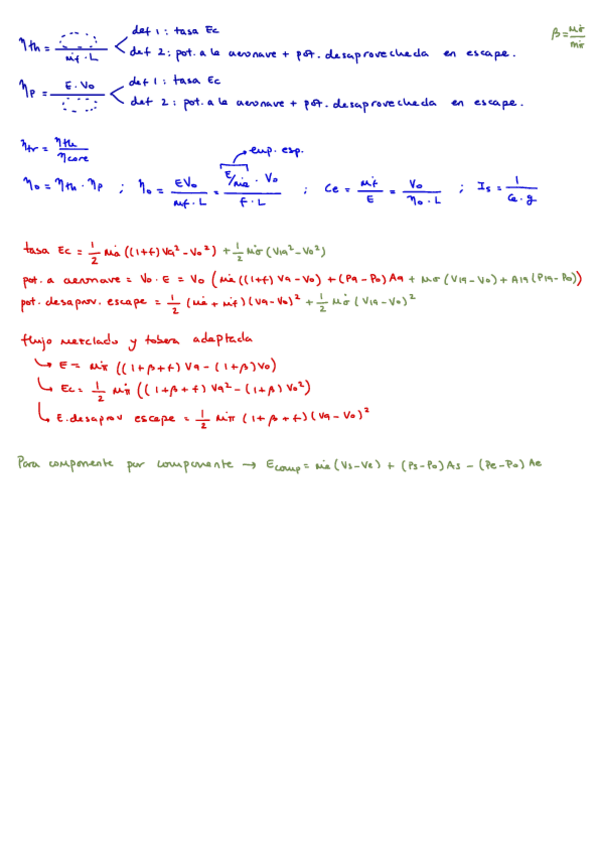 def 1: tasa Ec
β = ṁσ/ṁπ
ηth = (......)/(ṁf · L)
def 2: pot. a la aeronave + pot. desaprovechada en escape.
def 1: tasa Ec
ηp = E · V0/(......)
def 2: pot. a la aeronave + pot. desaprovechada en escape.
ηtr = ηth/ηcore
emp. esp.
η0 = ηth · ηp ; η0 = EV0/(ṁf · L) = (E/ṁa · V0)/(f · L) ; Ce = ṁf/E = V0/(η0 · L) ; Is = 1/(Ce · g)
tasa Ec = 1/2 ṁa ((1+f) V9² - V0²) + 1/2 ṁσ (V19² - V0²)
pot. a aeronave = V0 · E = V0 (ṁa ((1+f) V9 - V0) + (P9 - P0) A9 + ṁσ (V19 - V0) + A19 (P19 - P0))
pot. desaprov. escape = 1/2 (ṁa + ṁf) (V9 - V0)² + 1/2 ṁσ (V19 - V0)²
flujo mezclado y tobera adaptada
↳ E = ṁπ ((1+β+f) V9 - (1+β) V0)
↳ Ec = 1/2 ṁπ ((1+β+f) V9² - (1+β) V0²)
↳ E. desaprov escape = 1/2 ṁπ (1+β+f) (V9 - V0)²
Para componente por componente → Ecomp = ṁa (Vs - Ve) + (Ps - P0) As - (Pe - P0) Ae